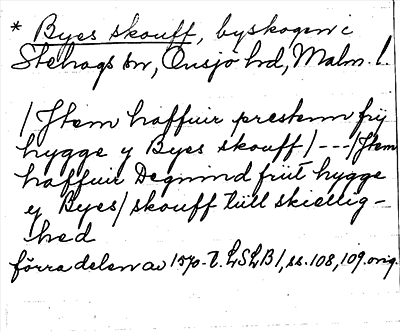 * Byes skouff, byskogen i
Stehags sn, Onsjö hd, Malm. l.
/ Jtem haffuir prestenn frij
hygge y Byes skouff / --- / Jtem
haffuir Degnind friit hygge
y Byes / skouff tiill skiellig-
hed
förra delen av 1570-t. LSLB 1, ss. 108, 109. orig.